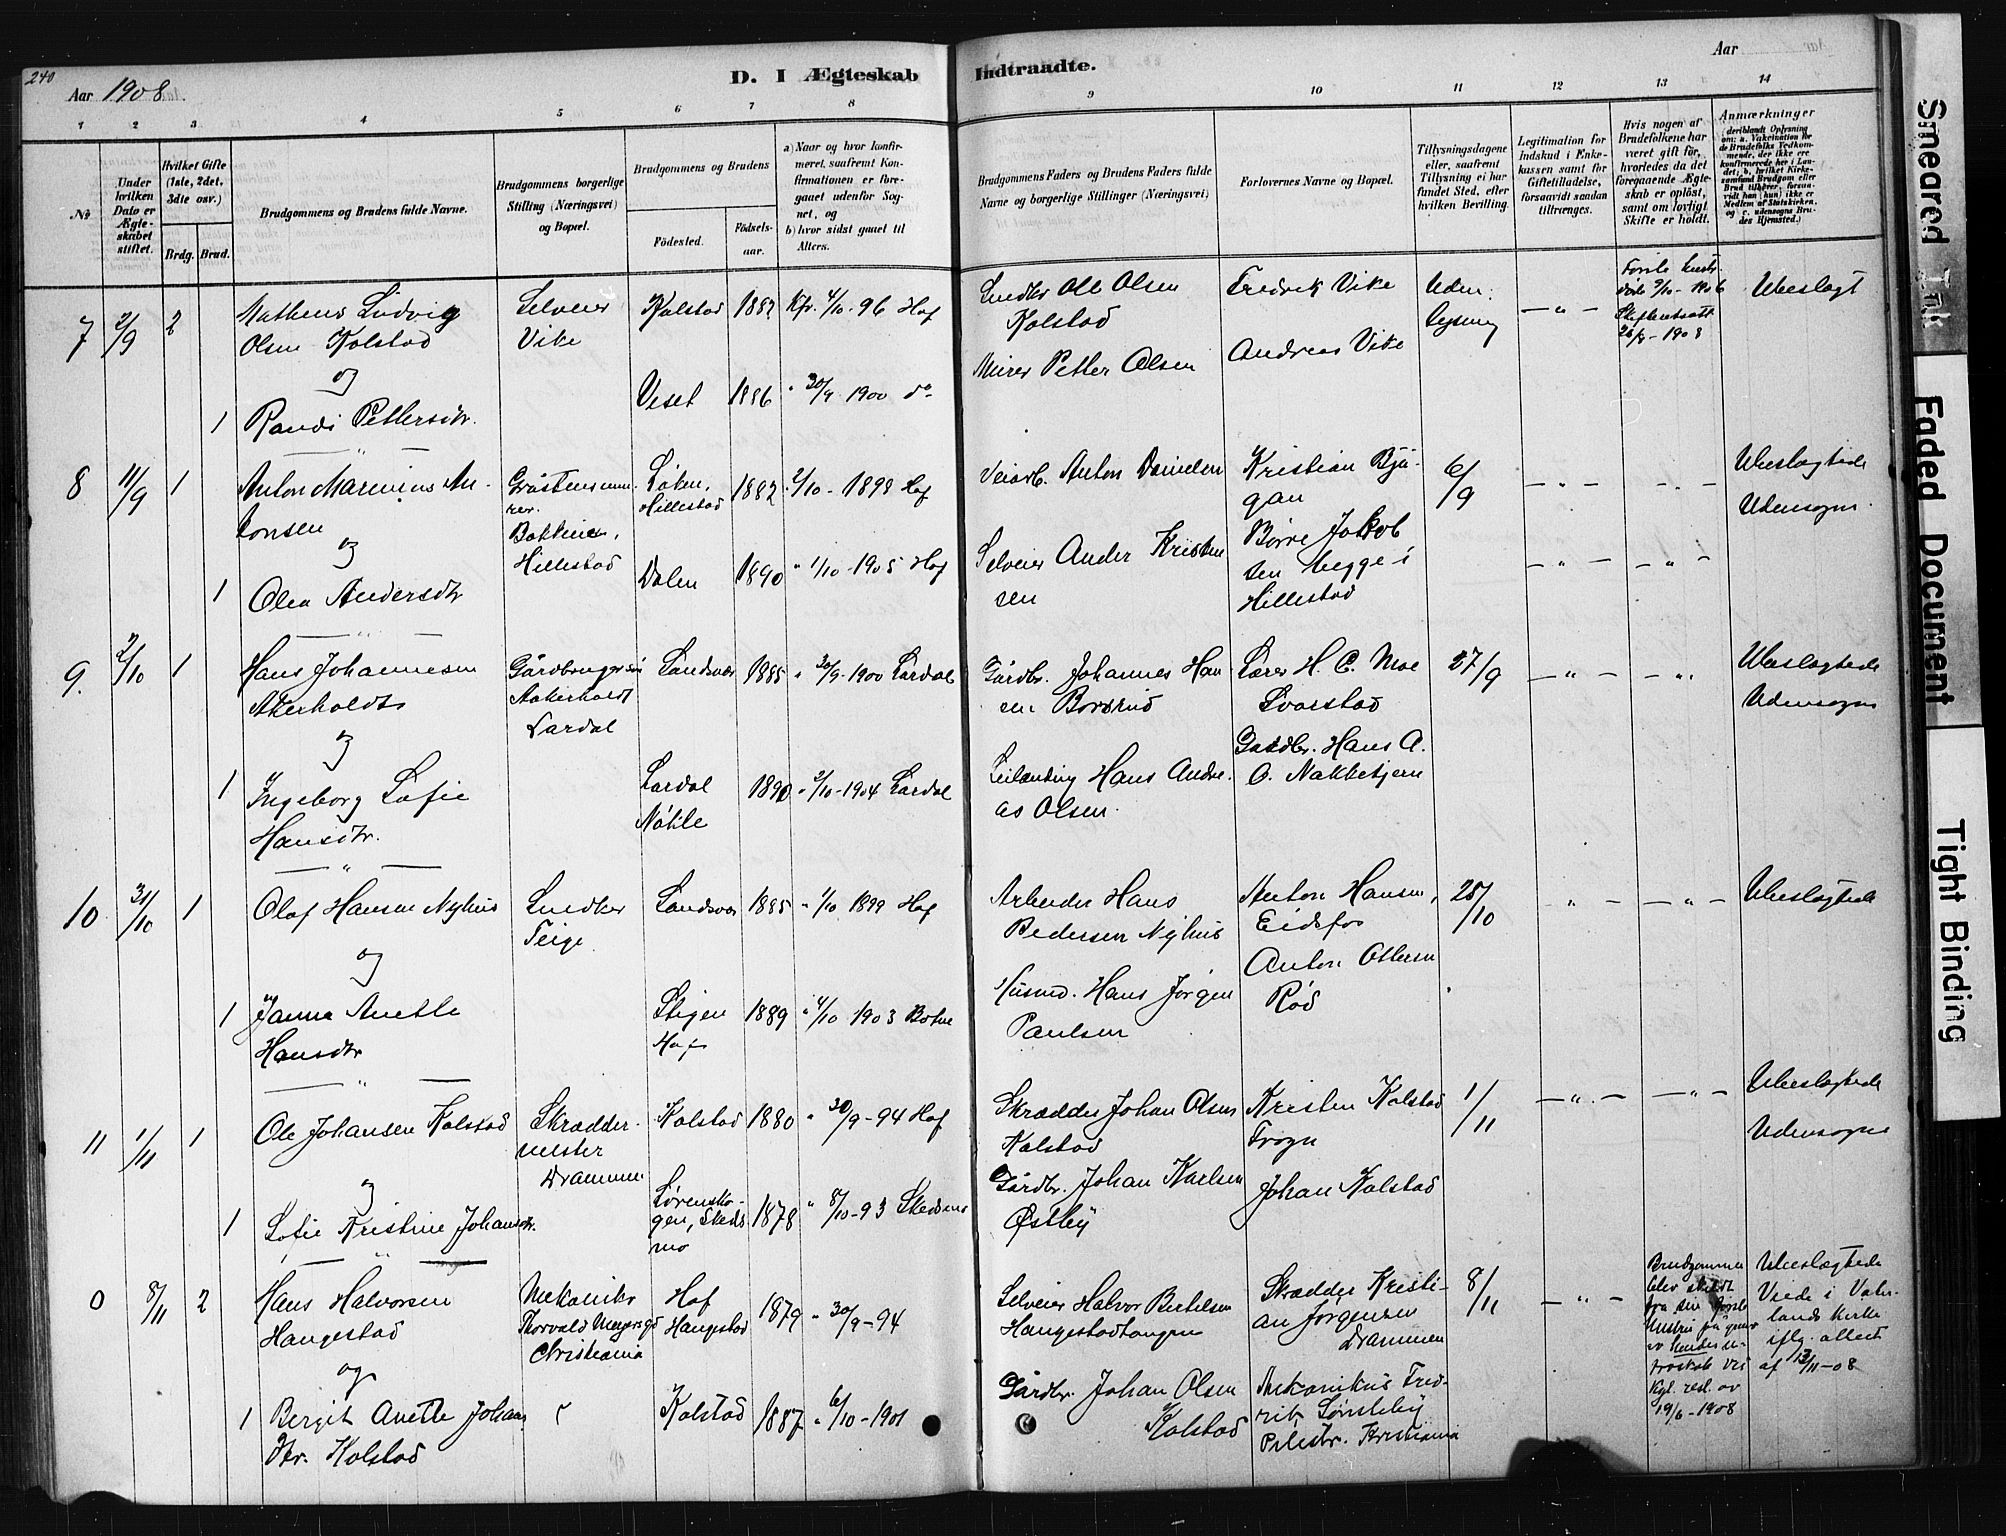 240
Aar 1908.
D. I Ægteskab Indtraadte.
Aar
1 2 3 4 5 6 7 8 9 10 11 12 13 14
No
Under hvilken Dato er Ægteskabet stiftet.
Hvilket Gifte (1ste, 2det, 3die osv.)
Brdg. Brud.
Brudgommens og Brudens fulde Navne.
Brudgommens borgerlige Stilling (Næringsvei) og Bopæl.
Brudgommens og Brudens
Födested.
Födselsaar.
a) Naar og hvor konfirmeret, saafremt Konfirmationen er foregaaet udenfor Sognet, og
b) hvor sidst gaaet til Alters.
Brudgommens Faders og Brudens Faders fulde Navne og borgerlige Stillinger (Næringsvei)
Forlovernes Navne og Bopæl.
Tillysningsdagene eller, saafremt Tillysning ei har fundet Sted, efter hvilken Bevilling.
Legitimation for Indskud i Enkekassen samt for Giftetilladelse, forsaavidt saadan tiltrænges.
Hvis nogen af Brudefolkene har været gift för, hvorledes da det foregaaende Ægteskab er oplöst, samt om lovligt Skifte er holdt.
Anmærkninger (deriblandt Oplysning om: a. Vakcination for de Brudefolks Vedkommende, der ikke ere konfirmerede her i Landet; b. hvilket Kirkesamfund Brudgom eller Brud tilhörer, forsaavidt han (hun) ikke er Medlem af Statskirken, og c. udensogns Brudes Hjemsted.)
7 2/9 2 Matheus Ludvig Olsen Kolstad
Selveier Vike
Kolstad 1882 Kfr. 4/10-96 Hof
Ole Olsen Kolstad
Fredrik Vike
Uden Lysning
- " -
Ubeslægt
og
1 Randi Pettersdtr.
Veset 1886 " 30/9 1900 do
Murer Petter Olsen
Andreas Vike
8 11/9 1 Anton Marinius Antonsen
Bakken, Hillestad
Løken, Hillestad 1882 " 2/10-1898 Hof
Veiarb. Anton Danielsen
Kristian Bjugan
6/9
- " - - " -
Ubeslægtede Udensogns.
og
1 Olea Andersdtr
Dalen 1890 " 1/10-1905 Hof
Selveier Ander Kristensen
Børre Jakobsen begge i Hillestad
- " - - " -
9. 2/10 1 Hans Johannesen Akerholdt
Gårdbrugersøn Aakerholdt Lardal
Sandsvær 1885 " 30/9-1900 Lardal
Gårdbr. Johannes Hansen Borsrud
Lærer H. C. Moe Svarstad
27/9
- " - - " -
Ubeslægtede Udensogns
og
1 Ingeborg Sofie Hansdtr.
Lardal Nøkle 1890 " 2/10-1904 Lardal
Leilænding Hans Andreas Olsen.
Gaardbr. Hans A. O. Nakkebjern
10 31/10 1 Olaf Hansen Nyhus
Smedker Teige
Sandsvær 1885 " 1/10 1899 Hof
Arbeider Hans Pedersen Nyhus
Anton Hansen, Eidsfos
25/10
" - - " -
Ubeslægtede
og
1 Janna Anette Hansdtr
Stigen Hof 1889 " 4/10 1903 Botne
Husmd. Hans Jørgen Paulsen
Anton Ottersen Rød
11 1/11 1 Ole Johansen Kolstad
Skræddermester Drammen
Kolstad 1880 " 30/9-94 Hof
Skrædder Johan Olsen Kolstad
Kristen Kolstad Frogn
1/11
- " - - " -
Ubeslægtede Udensogns
og
1 Sofie Kristine Johansdtr.
Sørenskogen, Skedsmo 1878 " 8/10-93 Skedsmo
Gårdbr. Johan Karlsen Østby
Johan Kolstad
0 8/11 2 Hans Halvorsen Hangestad
Mekaniker Thorvald Meyersgd Christiania
Hof Hangestad 1879 " 30/9-94
Selveier Halvor Bertelsen Hangestadtangen
Skrædder Kristian Jørgensen Drammen
8/11
- " -
Brudgommen blev skildt fra sin første Hustru på grund av hendes utroskab ved Kgl. resl. av 19/6-1908
Ubeslægtede Viede i Vaterlands Kirke iflg. attest af 13/11-08
og
1 Bergit Anette Johansdtr. Kolstad
Kolstad 1887 " 6/10-1901
Gårdbr. Johan Olsen Kolstad
Mekanikus Fredrik Sønsteby Pilestr. Kristiania
Smeared Ink
Faded Document
Tight Binding